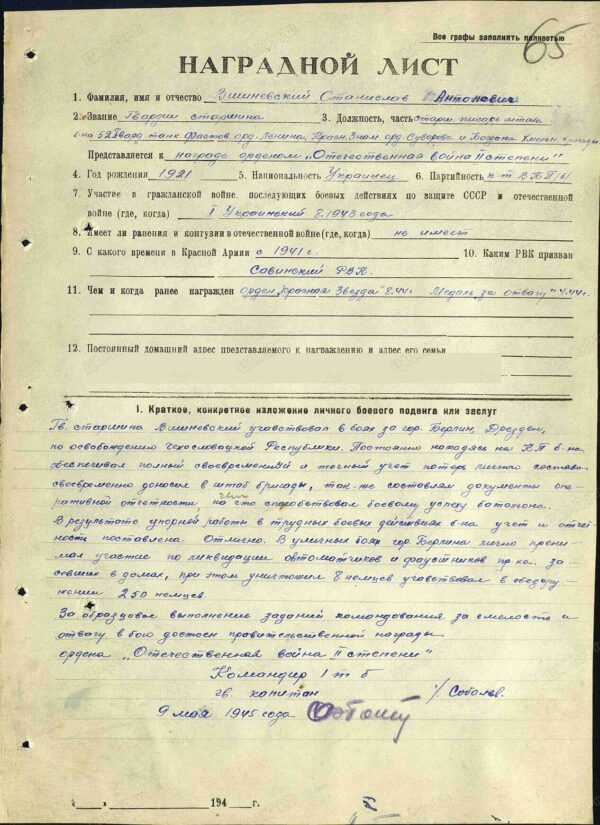 Все графы заполнять полностью
65
НАГРАДНОЙ ЛИСТ
1. Фамилия, имя и отчество Вишневский Станислав Антонович
2. Звание Гвардии старшина 3. Должность, часть старш. писарь штаба
б-на 52 Гвард. танк. Фастов. орд. Ленина, Красн. Знам. орд. Суворова и Богдана Хмельн. бригады
Представляется к награде орденом „Отечественная война II степени"
4. Год рождения 1921 5. Национальность Украинец 6. Партийность к-т ВКП/б/
7. Участие в гражданской войне, последующих боевых действиях по защите СССР и отечественной
войне (где, когда) I Украинский 8.1943 года
8. Имеет ли ранения и контузии в отечественной войне (где, когда) не имеет
9. С какого времени в Красной Армии с 1941 г. 10. Каким РВК призван
Савинский РВК
11. Чем и когда ранее награжден орден „Красная Звезда" 8.44г. Медаль „за отвагу" 4.44г.
12. Постоянный домашний адрес представляемого к награждению и адрес его семьи
I. Краткое, конкретное изложение личного боевого подвига или заслуг
Гв. старшина Вишневский учавствовал в боях за гор. Берлин, Дрезден,
по освобождению Чехословацкой Республики. Постоянно находясь на КП б-на
обеспечивал полный своевременный и точный учет потерь личного состава
своевременно доносил в штаб бригады, так-же составлял документы опе-
ративной отчетности, чем способствовал боевому успеху батальона.
В результате упорной работы в трудных боевых действиях б-на учет и отчет
ность поставлена Отлично. В уличных боях гор. Берлина лично прини-
мал участие по ликвидации автоматчиков и фаустников пр-ка, за-
севших в домах, при этом уничтожил 8 немцев учавствовал в обезору-
жении 250 немцев.
За образцовое выполнение заданий командования за смелость и
отвагу в бою достоин правительственной награды
ордена „Отечественная война II степени"
Командир 1 т б
гв. капитан / Соболев.
9 мая 1945 года
„ " 194 г.